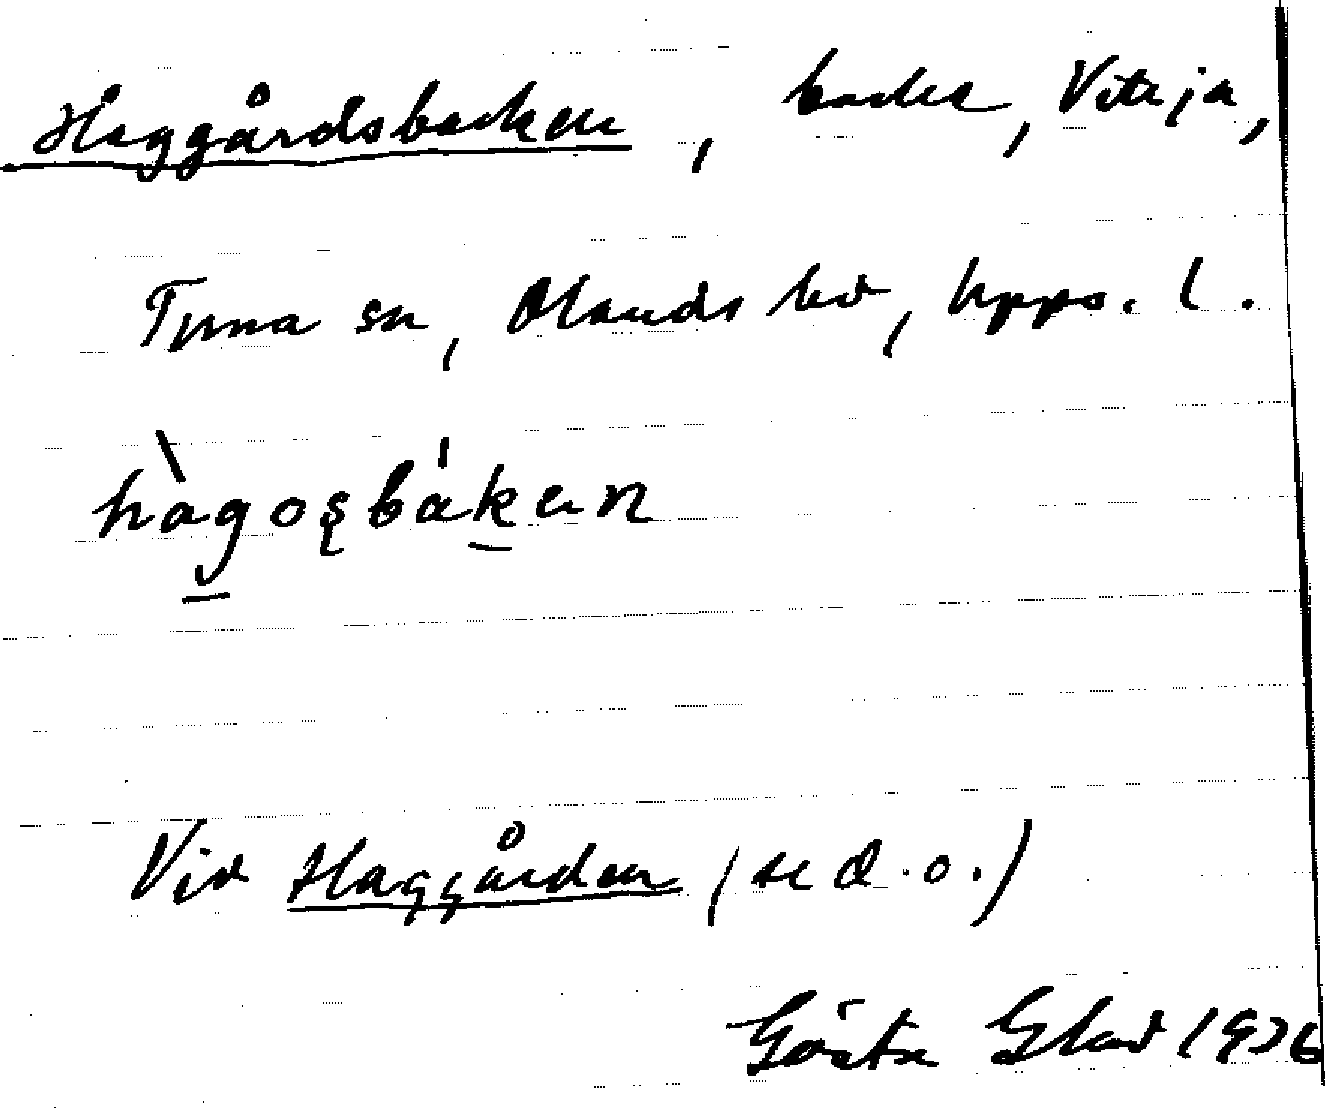 Haggårdsbacken, backe, Vitsja,
Tuna sn, Olands hd, Upps. l.
hàgosbákan
Vid Haggården (se d.o.)
Gösta Glad 1936